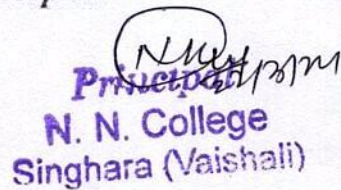 Principal
N. N. College
Singhara (Vaishali)